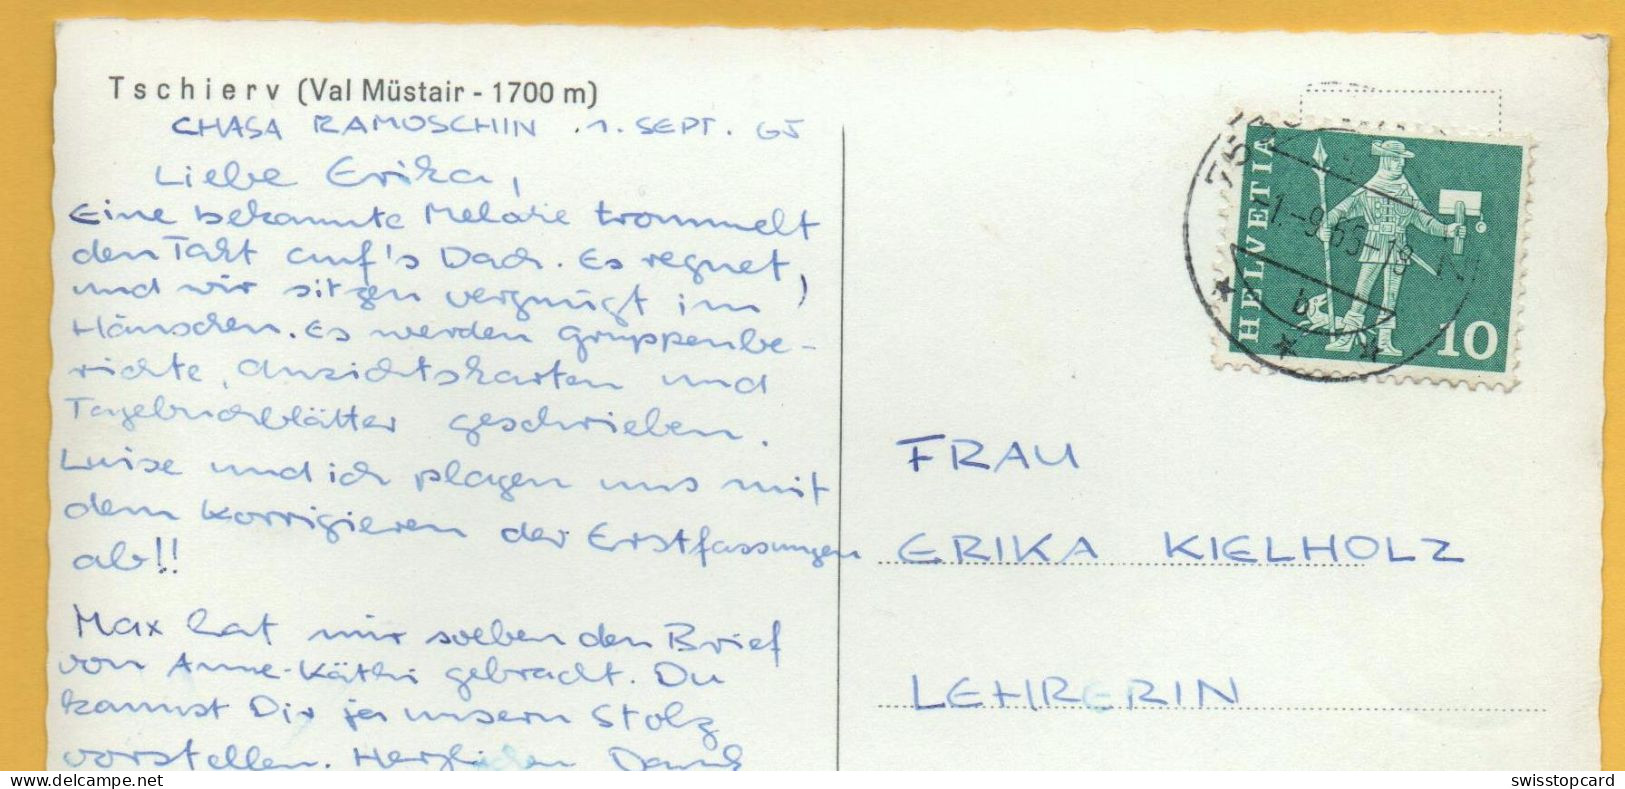 Tschierv (Val Müstair - 1700 m)
CHASA RAMOSCHIN . 1. SEPT. 65
Liebe Erika,
Eine bekannte Melodie trommelt
den Takt auf's Dach. Es regnet,
und wir sitzen vergnügt im
Häuschen. Es werden Gruppenbe-
richte, Ansichtskarten und
Tagebuchblätter geschrieben.
Luise und ich plagen uns mit
dem korrigieren der Erstfassungen
ab!!
Max hat mir soeben den Brief
von Anne-Käthi gebracht. Du
kannst Dir ja unsern Stolz
vorstellen. Herzlichen Dank
HELVETIA
10
1.-9.65-18
b
FRAU
ERIKA KIELHOLZ
LEHRERIN
swisstopcard